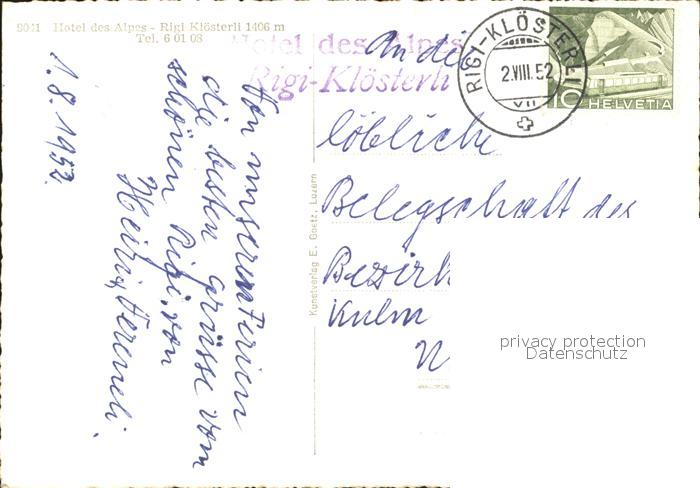 9041 Hotel des Alpes - Rigi Klösterli 1406 m
Tel. 6 01 08
Hotel des Alpes
Rigi-Klösterli
RIGI-KLÖSTERLI
2.VIII.52
VII
10 HELVETIA
1. 8. 1952.
Von unseren Ferien
die besten Grüsse vom
schönen Rigi, von
Heinz, Vreneli.
Kunstverlag E. Goetz, Luzern
An die
löbliche
Belegschaft des
Bezirk
Kulm
privacy protection
Datenschutz